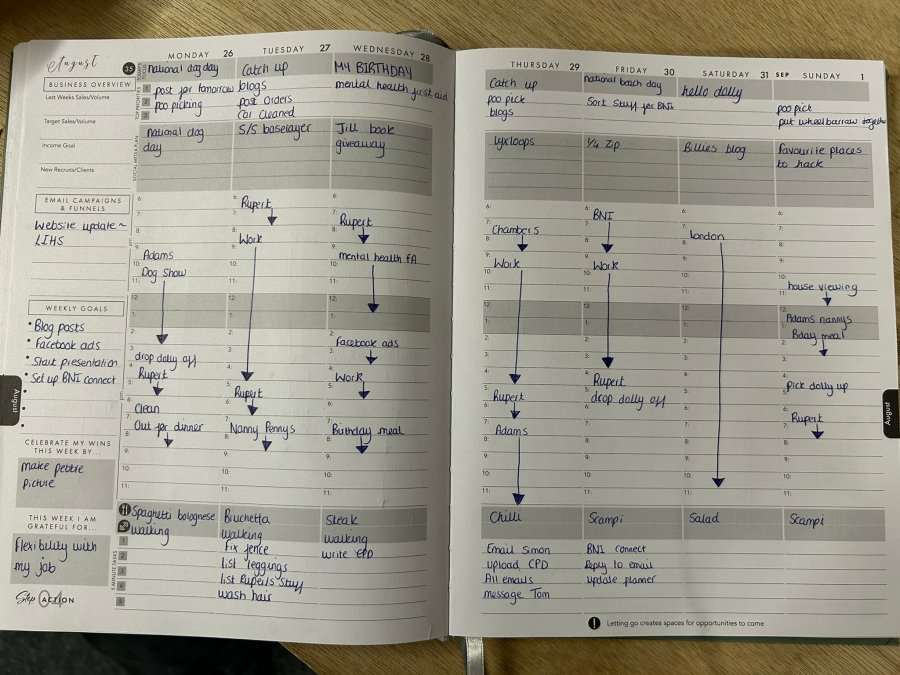 August
MONDAY 26
TUESDAY 27
WEDNESDAY 28
35
TODAY'S FOCUS
national dog day
Catch up
MY BIRTHDAY
TOP PRIORITIES
1 post for tomorrow
2 poo picking
3
blogs
post orders
car cleaned
mental health first aid
BUSINESS OVERVIEW
Last Weeks Sales/Volume
Target Sales/Volume
Income Goal
New Recruits/Clients
SOCIAL MEDIA PLAN
national dog
day
S/S baselayer
Jill book
giveaway
EMAIL CAMPAIGNS
& FUNNELS
Website update ~
LIHS
WEEKLY GOALS
Blog posts
Facebook ads
Start presentation
Set up BNI connect
August
CELEBRATE MY WINS
THIS WEEK BY...
make pebble
picture
THIS WEEK I AM
GRATEFUL FOR...
flexibility with
my job
Step 04 ACTION
6:
7:
8:
9:
10:
11:
12:
1:
2:
3:
4:
5:
6:
7:
8:
9:
10:
11:
Adams
Dog Show
drop dolly off
Rupert
Clean
Out for dinner
Rupert
Work
Rupert
Nanny Pennys
Rupert
mental health FA
Facebook ads
Work
Birthday meal
Spaghetti bolognese
walking
Bruchetta
walking
Steak
walking
5 MINUTE TASKS
1
2
3
4
5
Fix fence
list leggings
list Ruperts stuff
wash hair
write CPD
THURSDAY 29
FRIDAY 30
SATURDAY 31
SEP SUNDAY 1
Catch up
national beach day
hello dolly
poo pick
blogs
Sort stuff for BNI
poo pick
put wheelbarrow together
lyxloops
1/4 Zip
Billies blog
Favourite places
to hack
Chambers
Work
Rupert
Adams
BNI
Work
Rupert
drop dolly off
London
house viewing
Adams nannys
Bday meal
Pick dolly up
Rupert
Chilli
Scampi
Salad
Scampi
Email Simon
upload CPD
All emails
message Tom
BNI connect
Reply to email
update planner
August
Letting go creates spaces for opportunities to come